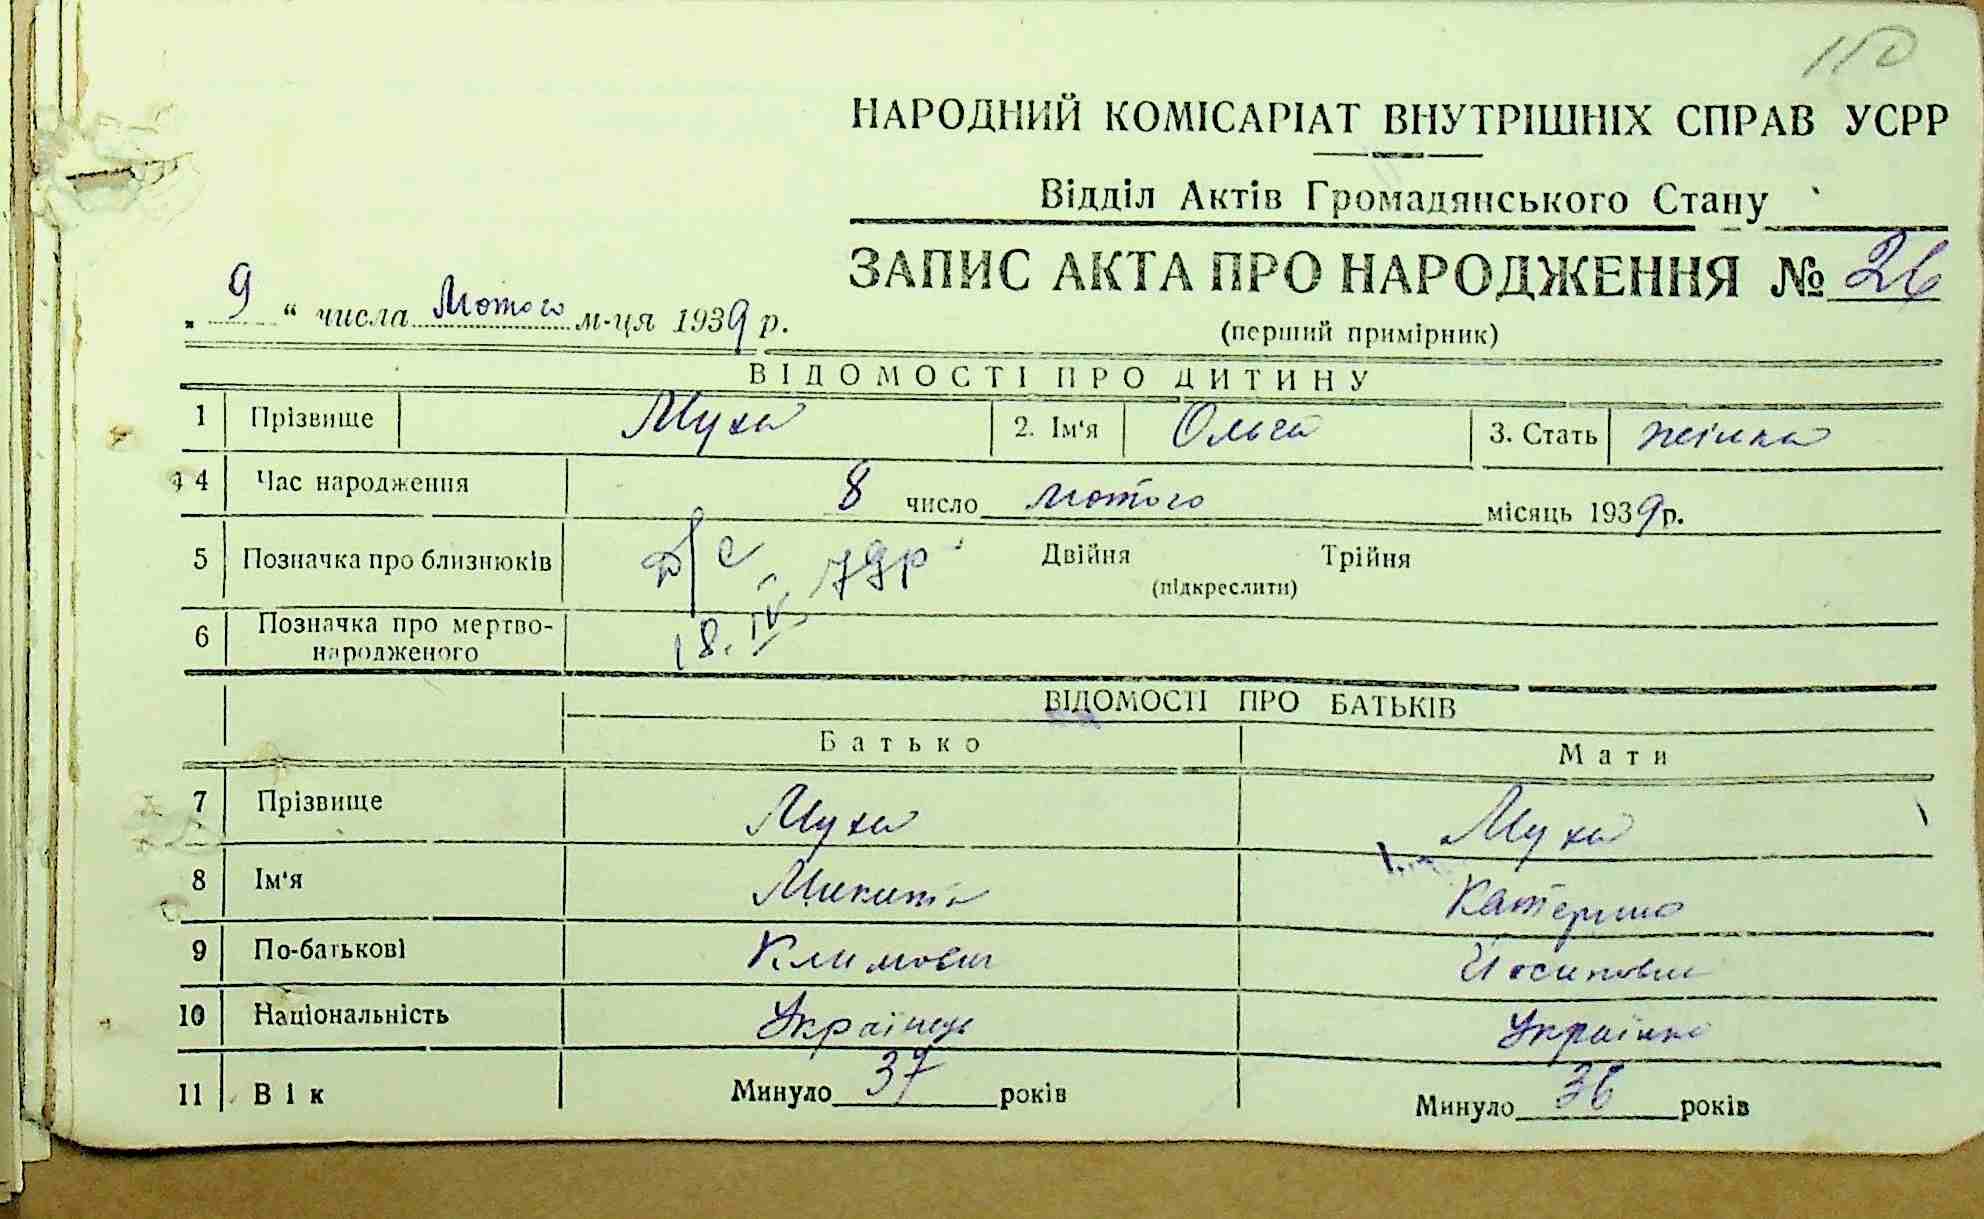 110
НАРОДНИЙ КОМІСАРІАТ ВНУТРІШНІХ СПРАВ УСРР
Відділ Актів Громадянського Стану
ЗАПИС АКТА ПРО НАРОДЖЕННЯ № 26
„ 9 “ числа Лютого м-ця 1939 р.
(перший примірник)
ВІДОМОСТІ ПРО ДИТИНУ
1 Прізвище Муха 2. Ім'я Ольга 3. Стать жінка
4 Час народження 8 число лютого місяць 1939 р.
5 Позначка про близнюків Д/с 79р Двійня Трійня
(підкреслити)
18. IV
6 Позначка про мертво-
народженого
ВІДОМОСТІ ПРО БАТЬКІВ
Батько Мати
7 Прізвище Муха Муха
8 Ім'я Микита Катерина
9 По-батькові Климович Йосиповна
10 Національність Українець Українка
11 Вік Минуло 37 років Минуло 36 років